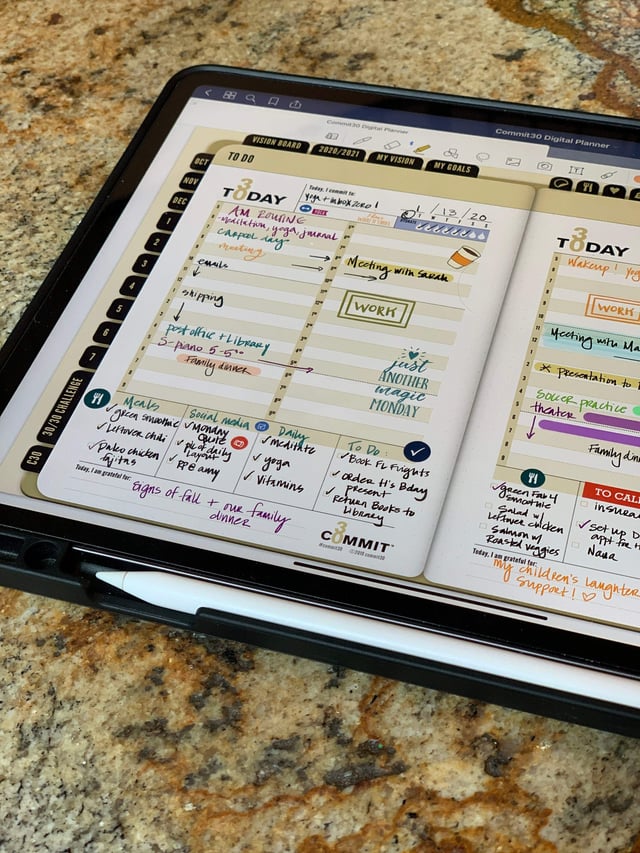 Commit30 Digital Planner
Commit30 Digital Planner
VISION BOARD
2020/2021
MY VISION
MY GOALS
OCT
NOV
DEC
1
2
3
4
5
6
7
30/30 CHALLENGE
C30
TO DO
30
TODAY
Today, I commit to:
yoga + inbox zero!
YOGA
1 / 13 / 20
AM ROUTINE
meditation, yoga, journal
carpool day
meeting
emails
shipping
post office + Library
S-piano 5-5:30
Family dinner
Meeting with Sarah
WORK
just
ANOTHER
magic
MONDAY
Meals
✓ green smoothie
✓ Leftover chili
✓ Paleo chicken
fajitas
Social media
✓ Monday
Quote
✓ pic of daily
Layout
✓ RPB amy
Daily
✓ meditate
✓ yoga
✓ Vitamins
To Do:
✓ Book FL Flights
✓ Order H's Bday
present
✓ Return Books to
Library
Today, I am grateful for:
signs of fall + our family
dinner
30
COMMIT
@commit30 ©2019 commit30
30
TODAY
Wakeup! Yog
WORK
Meeting with Ma
* Presentation to
Soccer practice
theater
Family din
✓ green Fab 4
smoothie
Salad w/
Leftover chicken
Salmon w/
Roasted Veggies
TO CAL
insura
✓ Set up D
appt for
Nana
Today, I am grateful for:
my children's laughter
support! ♡